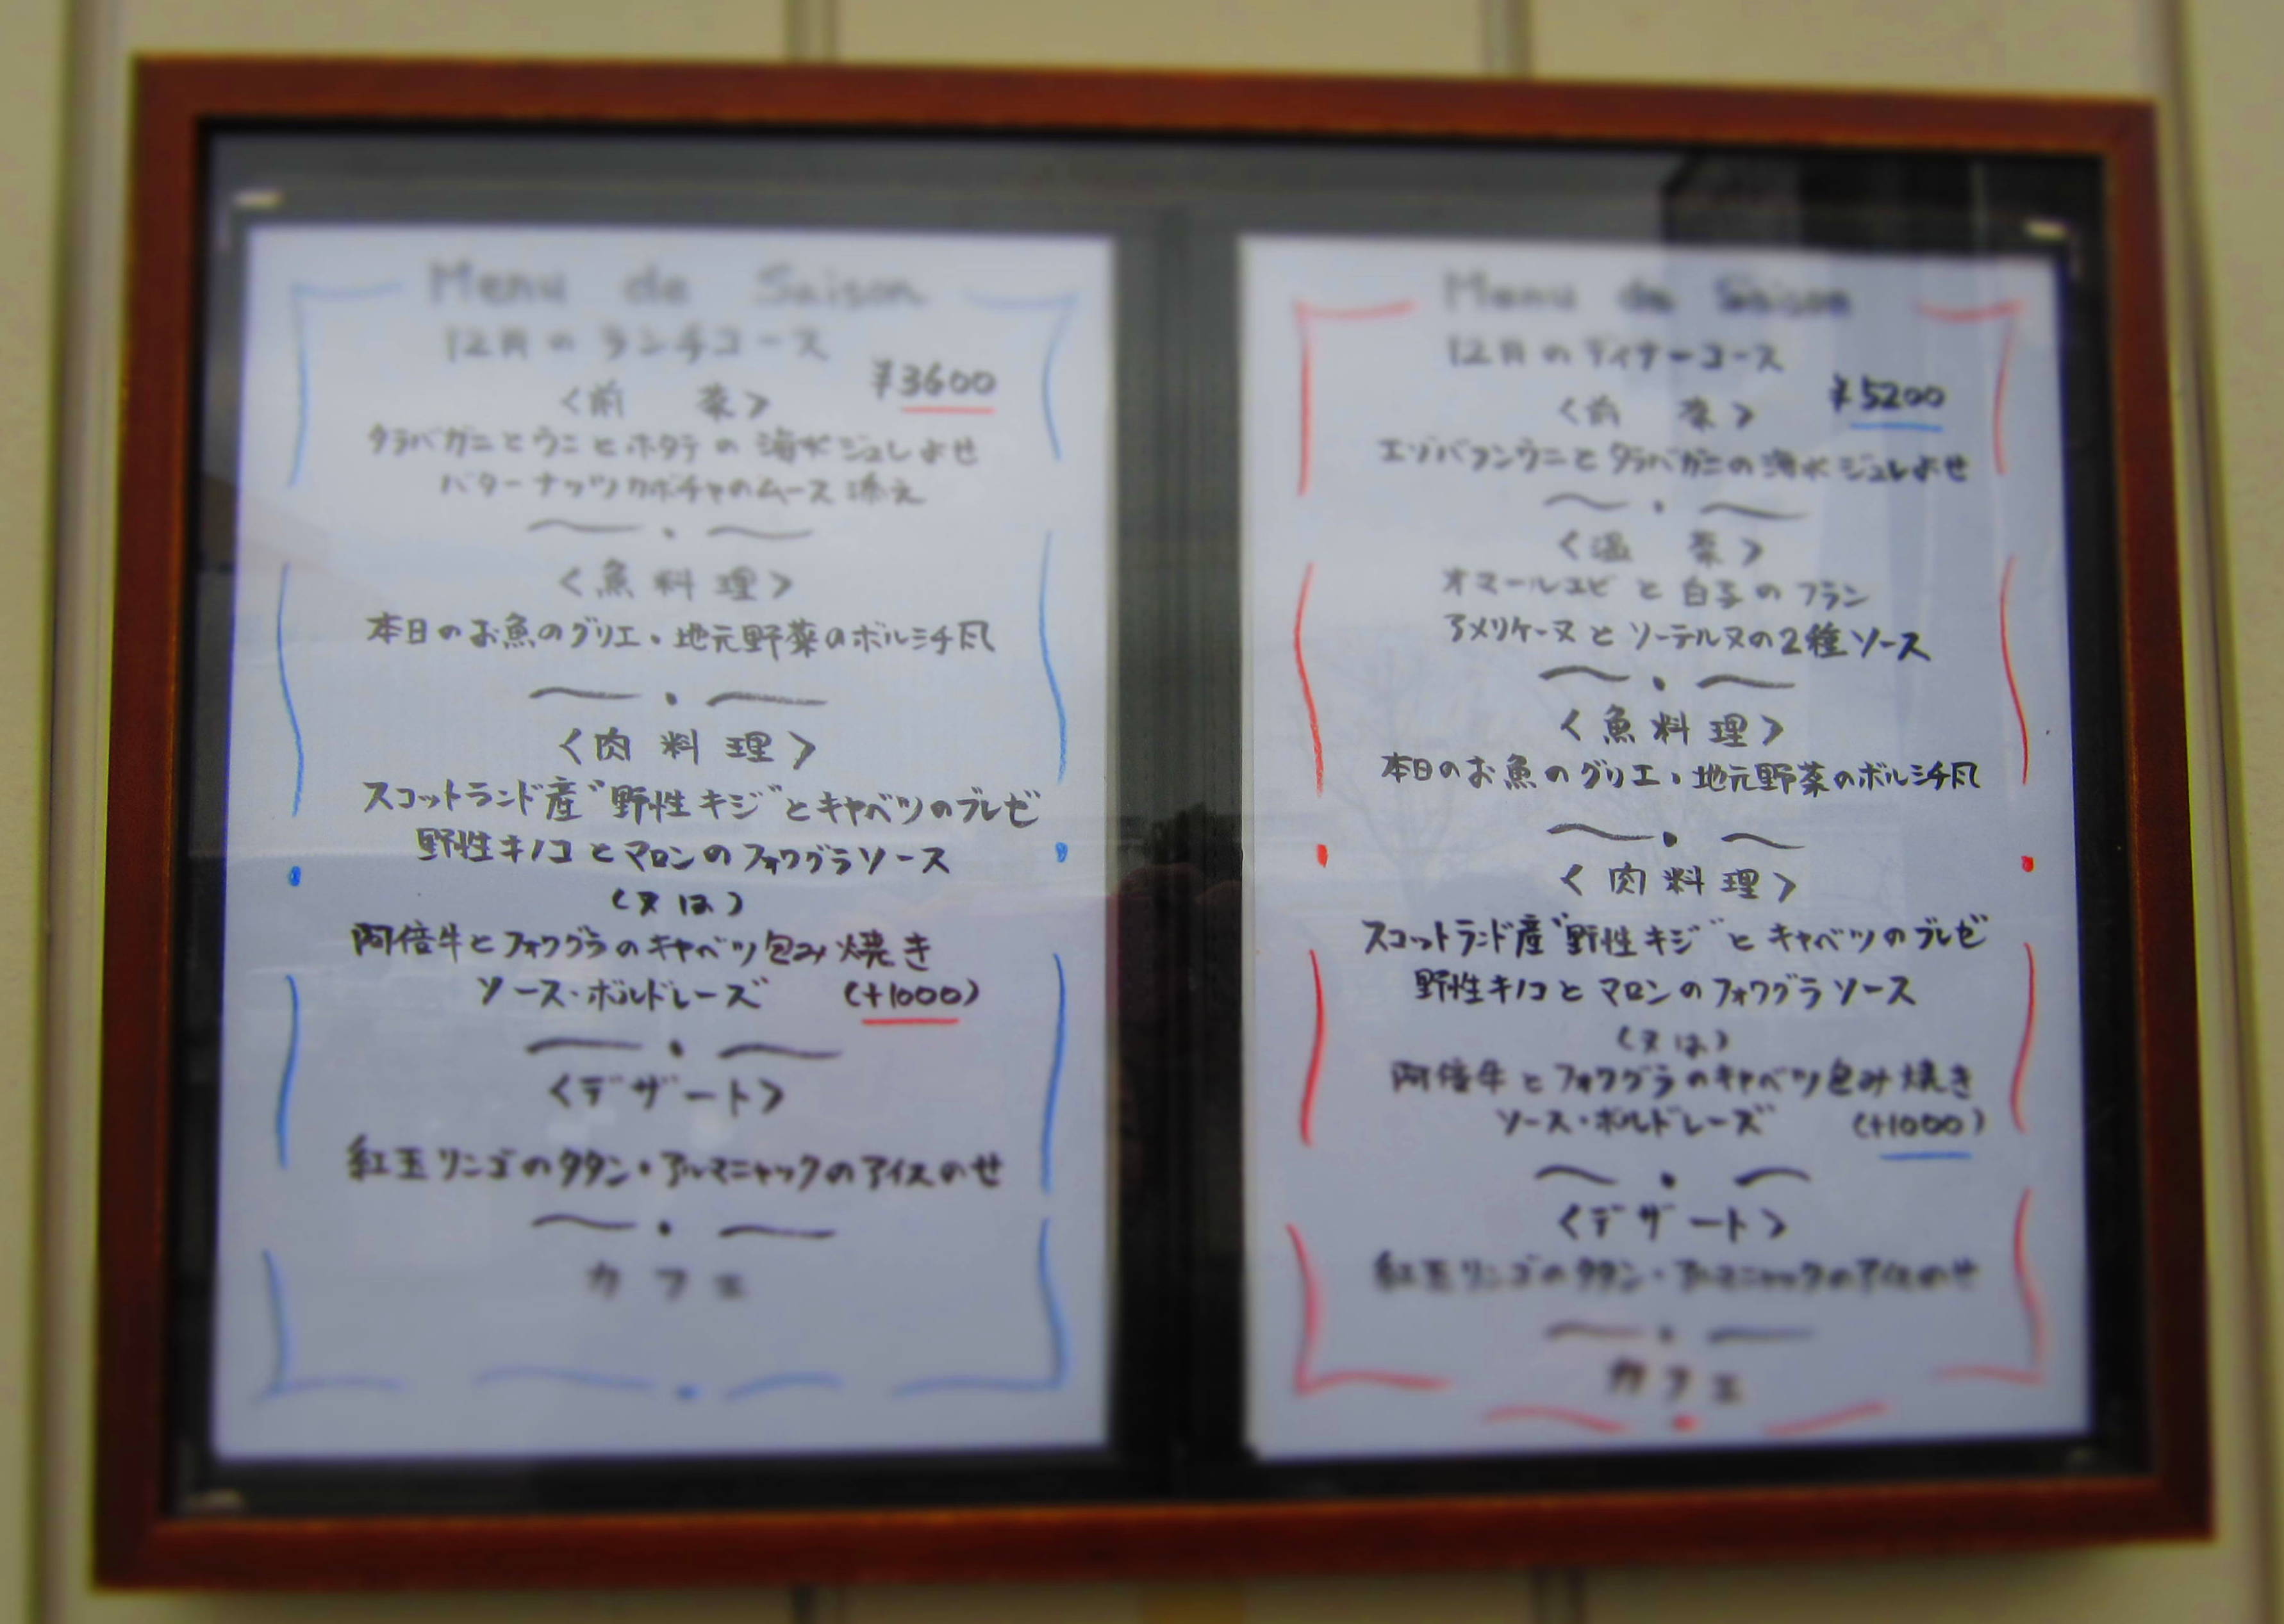 Menu de Saison
12月のランチコース
¥3600
〈前菜〉
タラバガニとウニとホタテの海水ジュレよせ
バターナッツカボチャのムース添え
〈魚料理〉
本日のお魚のグリエ・地元野菜のボルシチ風
〈肉料理〉
スコットランド産"野性キジ"とキャベツのブレゼ
野性キノコとマロンのフォワグラソース
(又は)
阿倍牛とフォワグラのキャベツ包み焼き
ソース・ボルドレーズ (+1000)
〈デザート〉
紅玉リンゴのタタン・アルマニャックのアイスのせ
カフェ
Menu de Saison
12月のディナーコース
¥5200
〈前菜〉
エゾバフンウニとタラバガニの海水ジュレよせ
〈温菜〉
オマールエビと白子のフラン
アメリケーヌとソーテルヌの2種ソース
〈魚料理〉
本日のお魚のグリエ・地元野菜のボルシチ風
〈肉料理〉
スコットランド産"野性キジ"とキャベツのブレゼ
野性キノコとマロンのフォワグラソース
(又は)
阿倍牛とフォワグラのキャベツ包み焼き
ソース・ボルドレーズ (+1000)
〈デザート〉
紅玉リンゴのタタン・アルマニャックのアイスのせ
カフェ